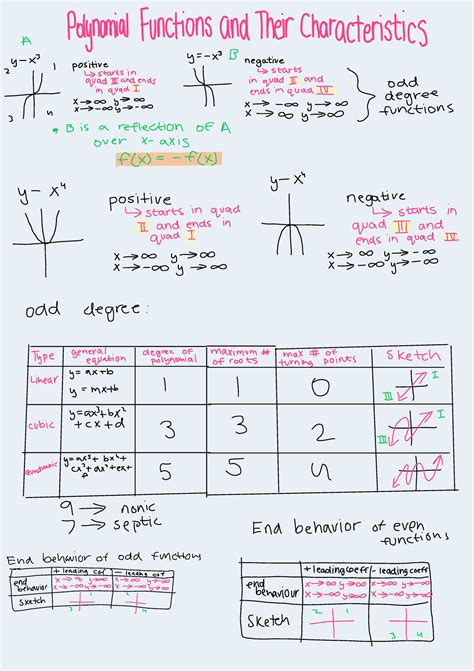 Polynomial Functions and Their Characteristics
A
y=x³
2 1
3 4
positive
↳ starts in quad III and ends in quad I
x→∞ y→∞
x→-∞ y→-∞
y=-x³ B
negative
↳ starts in quad II and ends in quad IV
x→∞ y→-∞
x→-∞ y→∞
odd degree functions
* B is a reflection of A
over x-axis
f(x) = -f(x)
y= x⁴
positive
↳ starts in quad
II and ends in
quad I
x→∞ y→∞
x→-∞ y→∞
y=-x⁴
negative
↳ starts in
quad III and
ends in quad IV
x→∞ y→-∞
x→-∞ y→-∞
odd degree:
Type general equation degree of polynomial maximum # of roots max # of turning points Sketch
Linear y=ax+b y=mx+b 1 1 0 III I
cubic y=ax³+bx²+cx+d 3 3 2 III I
5 5 4
9 → nonic
7 → septic
End behavior of odd functions
+ leading cof - leading cof
end behavior x→∞ y→∞ x→-∞ y→-∞ x→∞ y→-∞ x→-∞ y→∞
Sketch 1 3 2 4
End behavior of even
functions
+ leading coeff - leading coeff
end behaviour x→∞ y→∞ x→-∞ y→∞ x→∞ y→-∞ x→-∞ y→-∞
Sketch 2 1 3 4